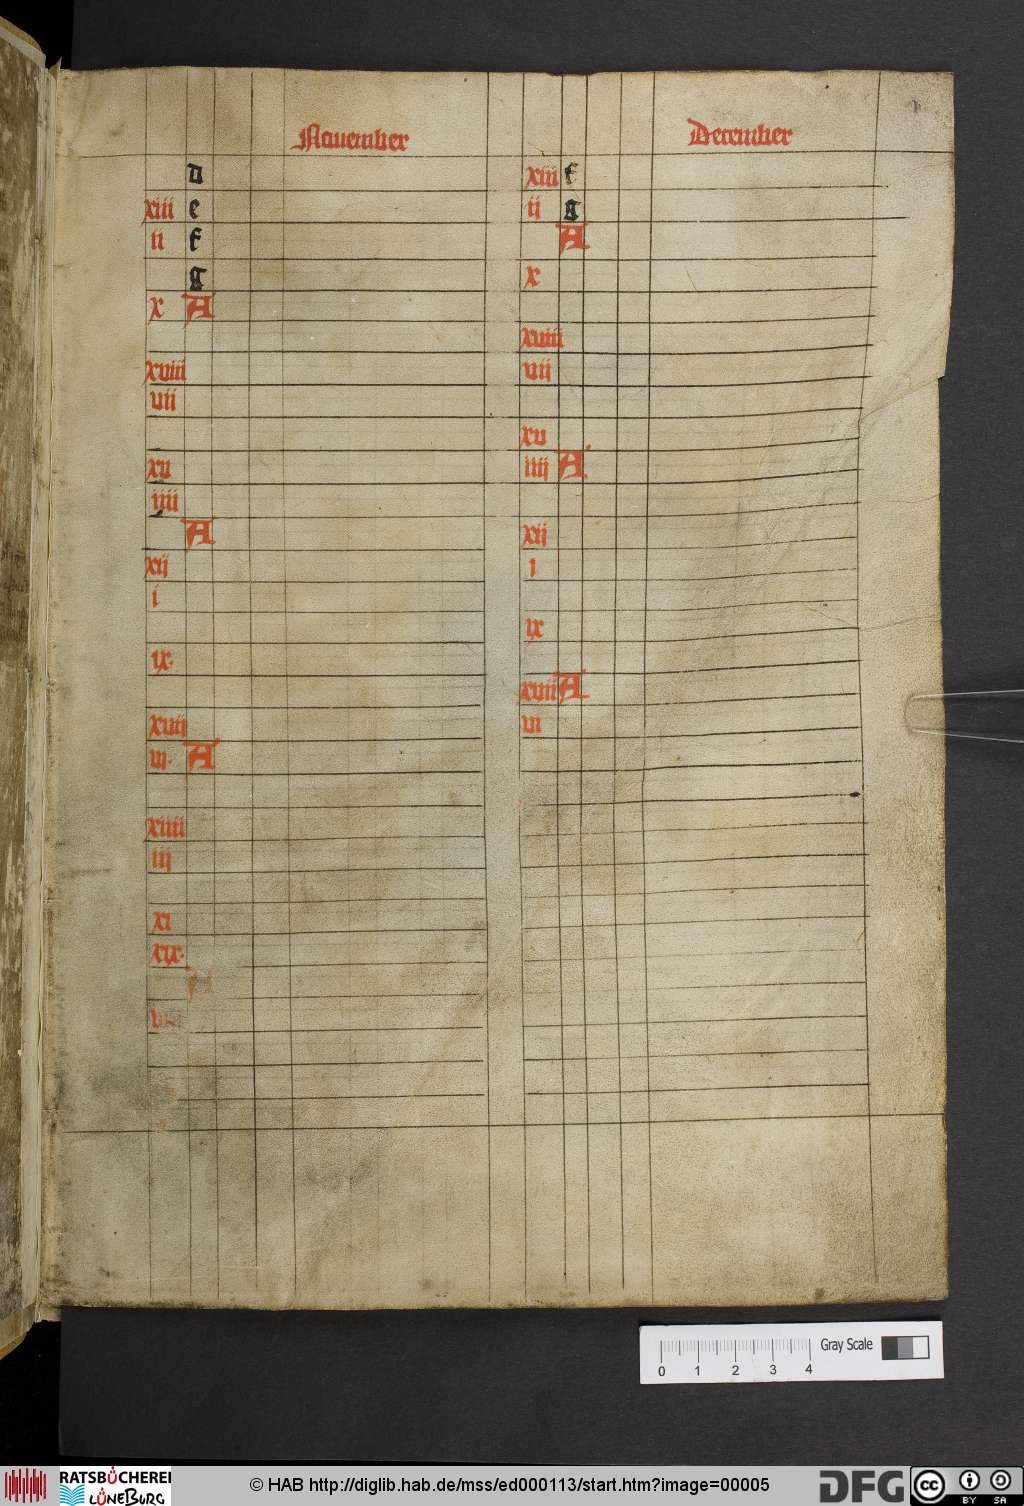 November
d
xiii e
ii f
g
x A
xviii
vii
xv
iiii
A
xij
i
ix.
xvij
vi. A
xiiii
iij
xi
xix.
December
xiii f
ij g
A
x
xviii
vij
xv
iiij A
xij
i
ix
xvii A
vi
0 1 2 3 4 Gray Scale
RATSBÜCHEREI
LÜNEBURG
© HAB http://diglib.hab.de/mss/ed000113/start.htm?image=00005
DFG
cc BY SA